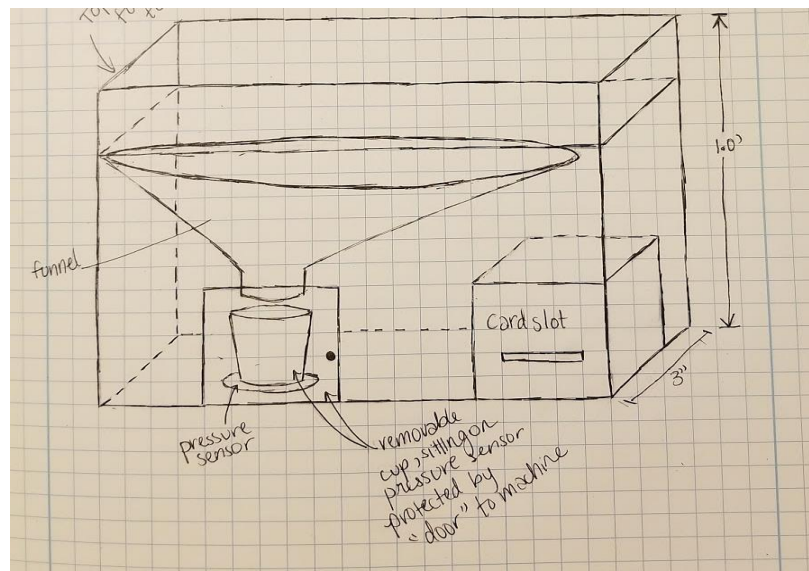 1.0'
funnel
card slot
3"
pressure
sensor
removable
cup, sitting on
pressure sensor
protected by
"door" to machine